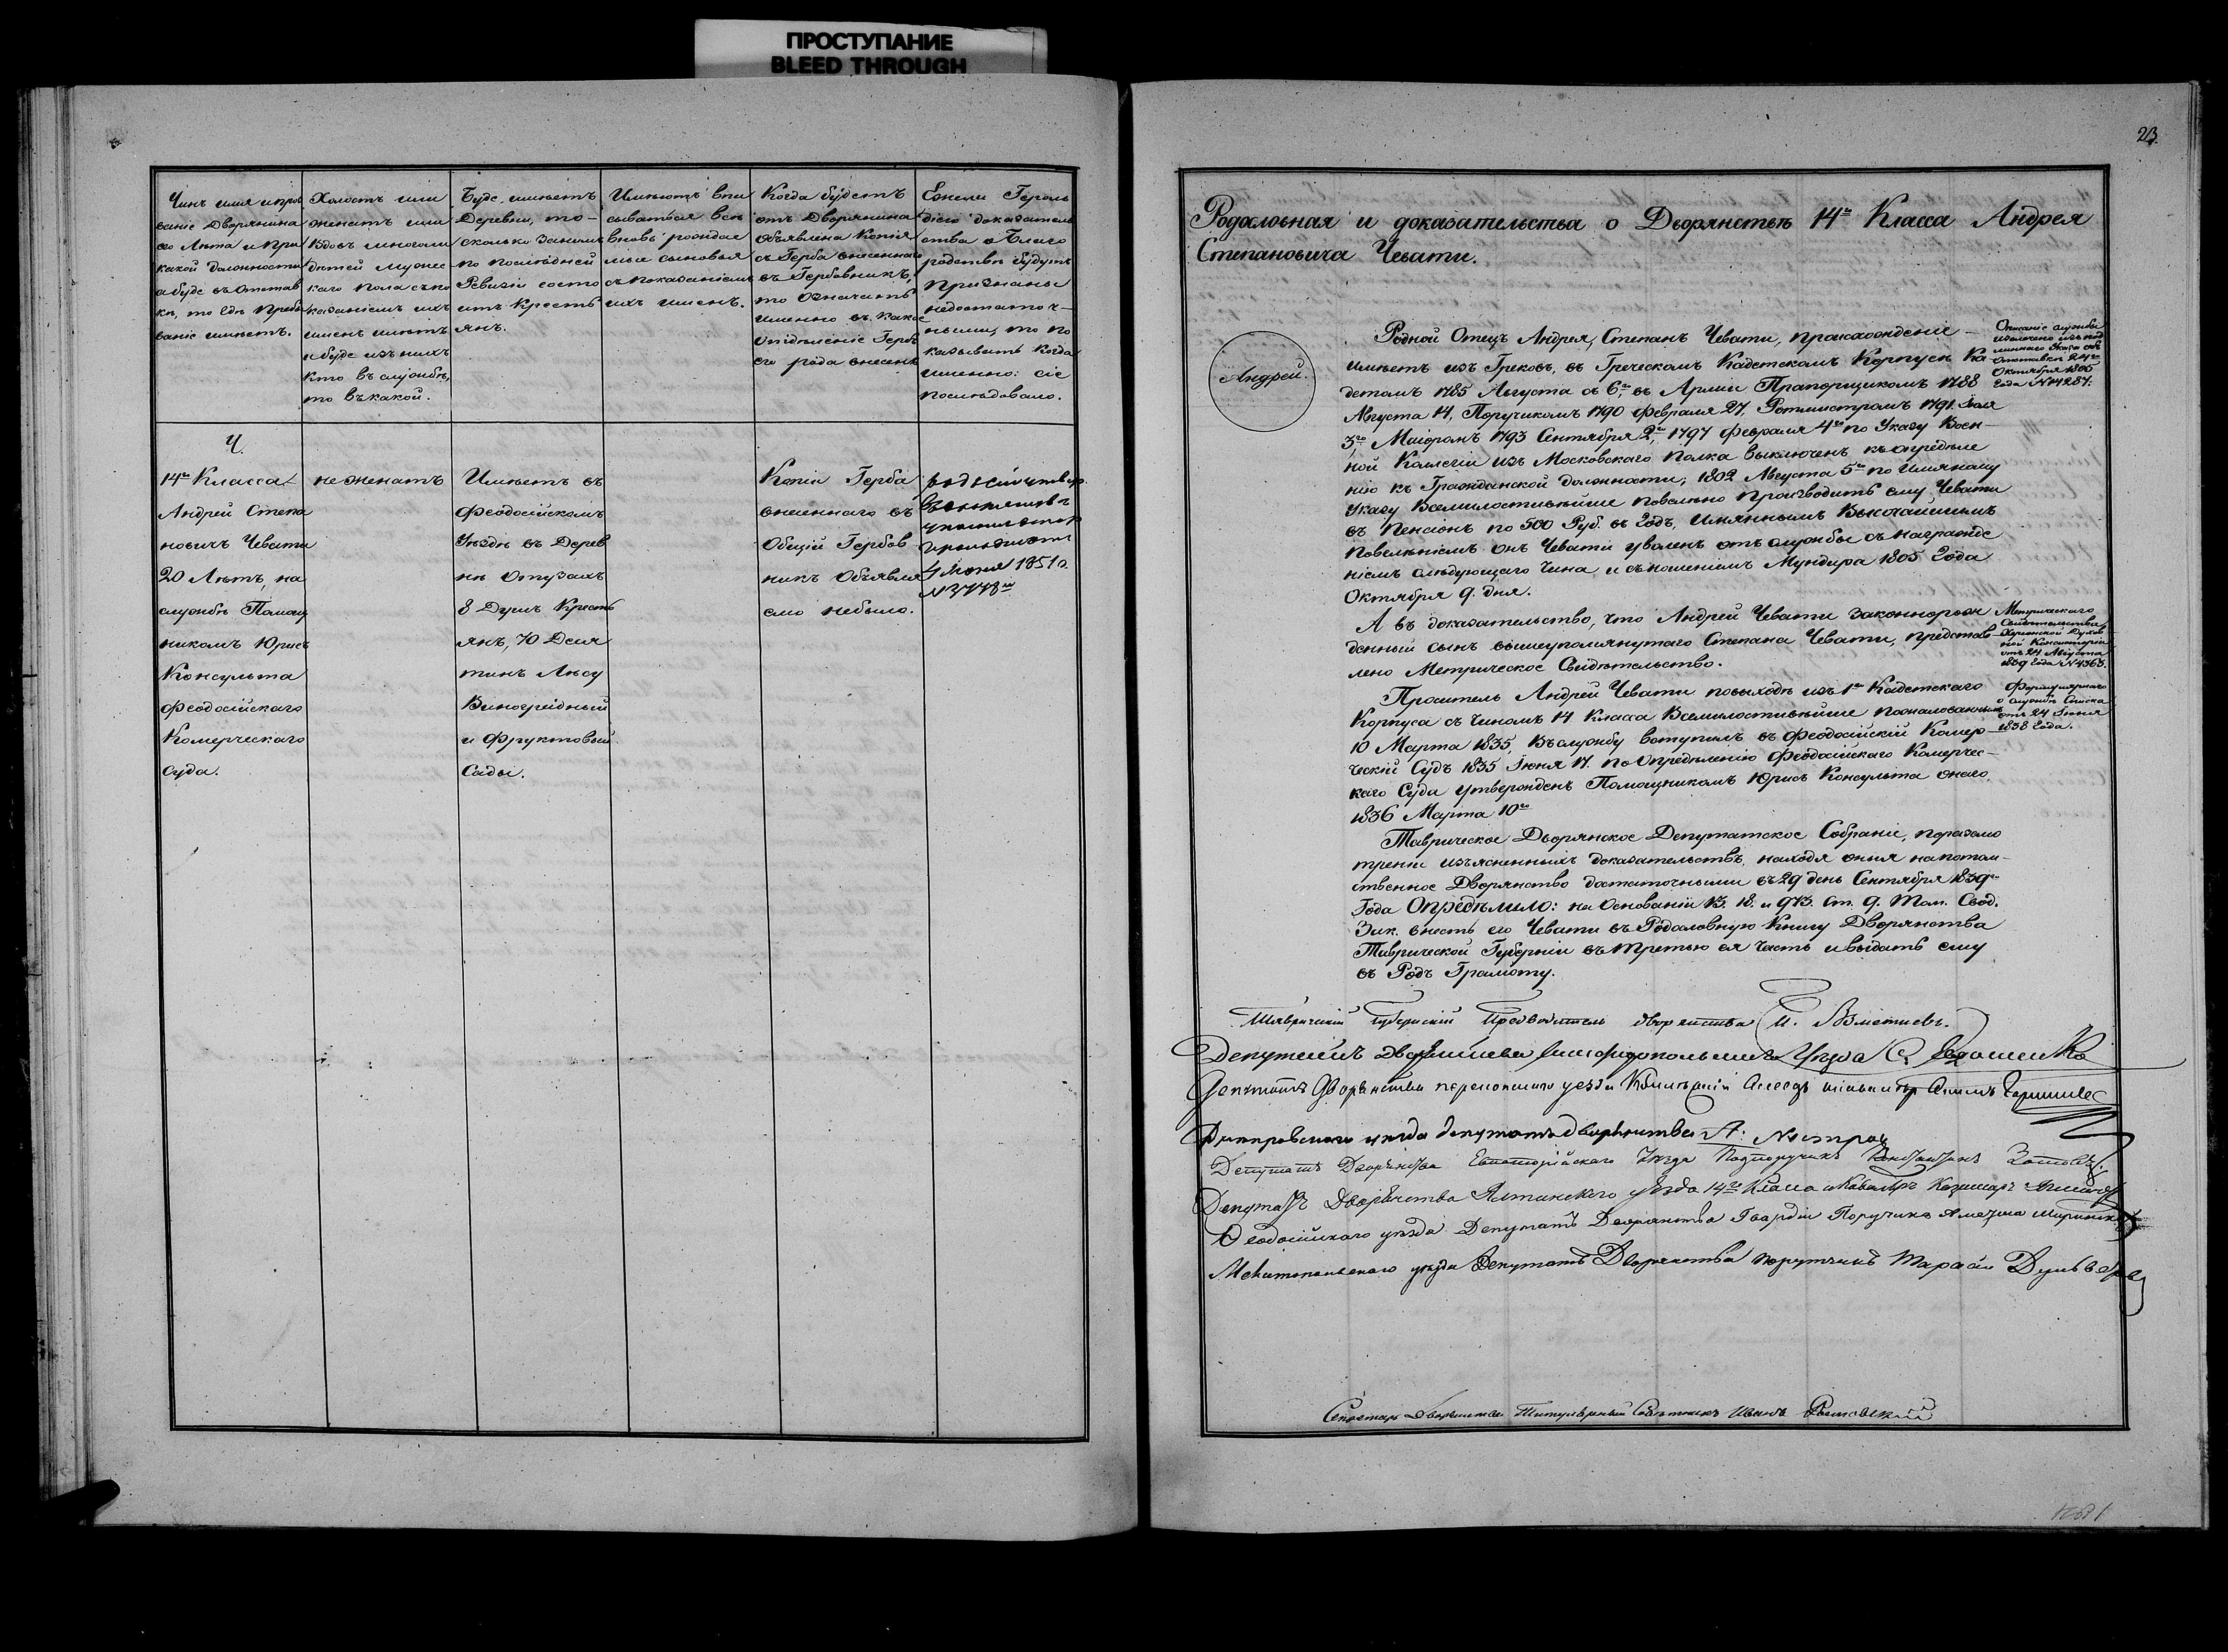 ПРОСТУПАНИЕ
BLEED THROUGH
Чинъ имя и проз
ваніе Дворянина
его Лѣта и при
какой должности
а буде въ Отстав
кѣ, то гдѣ Пребы
ваніе имѣетъ.
Холостъ или
женатъ или
Вдовъ многоли
дѣтей мужес
каго пола съпо
казаніемъ ихъ
именъ имѣетъ
и буде изъ нихъ
кто въ службѣ,
то въ какой.
Буде имѣетъ
Деревни, то-
сколько занимъ
по послѣдней
Ревизіи состо
итъ Кресть
янъ.
Имѣютъ впи
сываться всѣ
вновь рождае
мые сыновья
съ показаніемъ
ихъ именъ.
Когда будетъ
отъ Дворянина
объявлена Копія
съ Герба внесеннаго
въ Гербовникъ,
то означать
именно въ какое
отдѣленіе Гербъ
его рода внесенъ
Ежели Героль
діею доказатель
ства о Благо
родствѣ будутъ
признаны
недостаточ-
ными, то по
казывать когда
именно: сіе
послѣдовало.
Ч.
14го Класса
Андрей Степа
новичъ Чевати
20 Лѣтъ, на
службѣ Помощ
никомъ Юрисъ
Консульта
Феодосійскаго
Комерческаго
Суда.
не женатъ
Имѣетъ въ
Феодосійскомъ
Уѣздѣ въ Дерев
нѣ Отузахъ
8 Душъ Кресть
янъ, 70 Деся
тинъ Лѣсу
Виноградный
и Фруктовый
Сады.
Копіи Герба
внесеннаго въ
Общій Гербов
никъ Объявля
емо небыло.
родъ сей утвер
1851 г.
№ 3778
23.
Родословная и доказательства о Дворянствѣ 14го Класса Андрея
Степановича Чевати.
Андрей.
Родной Отецъ Андрея, Степанъ Чевати, происхожденіе
имѣетъ изъ Грековъ, въ Греческомъ Кадетскомъ Корпусѣ Ка-
детомъ 1785 Августа съ 6го, въ Арміи Прапорщикомъ 1788
Августа 14, Поручикомъ 1790 Февраля 27, Ротмистромъ 1791 Іюля
3го, Маіоромъ 1793 Сентября 2го, 1797 Февраля 4го по Указу Воен-
ной Коллегіи изъ Московскаго полка выключенъ къ опредѣле
нію къ Гражданской должности; 1802 Августа 5го по Имянному
Указу Всемилостивѣйше повелѣно производить ему Чевати
въ Пенсіонъ по 500 Руб. въ Годъ, Имяннымъ Высочайшимъ
Повелѣніемъ онъ Чевати уволенъ отъ службы съ награжде
ніемъ слѣдующаго Чина и съ ношеніемъ Мундира 1805 Года
Октября 9. дня.
Описаніе службы
извлечено изъ под
линнаго Указа объ
Отставкѣ 24го
Октября 1805
Года №14287.
А въ доказательство, что Андрей Чевати законнорож
денный сынъ вышеупомянутаго Степана Чевати, представ
лено Метрическое Свидѣтельство.
Метрическаго
Свидѣтельства
Херсонской Духов
ной Консисторіи
отъ 24 Августа
1839 Года №4363.
Проситель Андрей Чевати повыходѣ изъ 1го Кадетскаго
Корпуса съ Чиномъ 14 Класса Всемилостивѣйше пожалованнымъ
10 Марта 1835, Въ службу вступилъ въ Феодосійскій Комер-
ческій Судъ 1835 Іюня 17. По Опредѣленію Феодосійскаго Комерчес-
каго Суда утвержденъ Помощникомъ Юрисъ Консульта онаго
1836 Марта 10го
Формулярнаго
о службѣ Списка
отъ 24 Іюня
1838 Года.
Таврическое Дворянское Депутатское Собраніе, поразсмо
треніи изъясненныхъ доказательствъ, находя оныя на потом-
ственное Дворянство достаточными въ 29 день Сентября 1839го
Года Опредѣлило: на Основаніи 13. 18. и 973. Ст. 9. Том. Свод.
Зак. внесть его Чевати въ Родословную Книгу Дворянства
Таврической Губерніи въ третью ея часть и выдать ему
въ Родъ Грамоту.
Таврическій Губернскій Предводитель дворянства
Депутатъ Дворянства Симферопольскаго Уѣзда
Депутатъ Дворянства перекопскаго уезда
Днепровскаго уѣзда депутатъ дворянства А.
Депутатъ Дворянства Евпаторійскаго Уѣзда Подпоручикъ Константинъ
Депутатъ Дворянства Ялтинскаго уѣзда 14го Класа и Кавалеръ
Феодосійскаго уѣзда Депутатъ Дворянства Гвардіи Поручикъ
Мелитопольскаго уѣзда Депутатъ Дворянства поручикъ Тарасій
Секретарь Дворянства Титулярный Совѣтникъ Иванъ